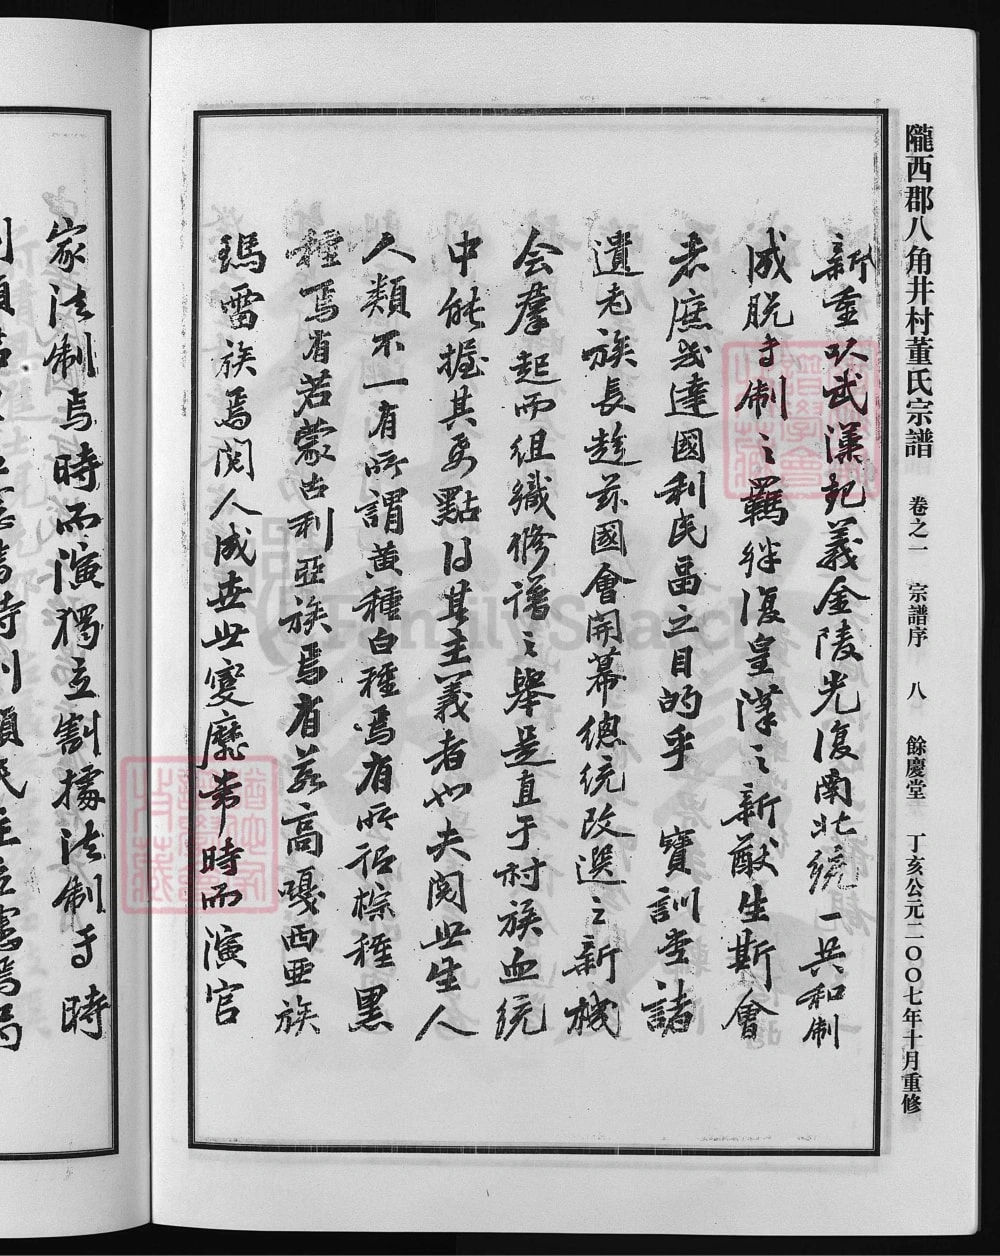 隴西郡八角井村董氏宗譜 卷之一 宗譜序 八 餘慶堂 丁亥公元二〇〇七年十月重修
新重以武漢起義金陵光復南北統一共和制
成脱専制之羈絆復皇漢之新猷生斯會
者庶或達國利民畐之目的乎 寶訓堂諸
遺老族長趁茲國會開幕總統改選之新機
会羣起而组織修譜之舉是直于村族血統
中能握其要點日其主義者也夫阅世生人
人類不一有所謂黄種白種焉有所谓棕種黑
種焉有若蒙古利亞族焉有若高嘎西亚族
瑪雷族焉阅人成世世變靡常時而演官
家法制焉時而演獨立割據法制于時
FamilySearch